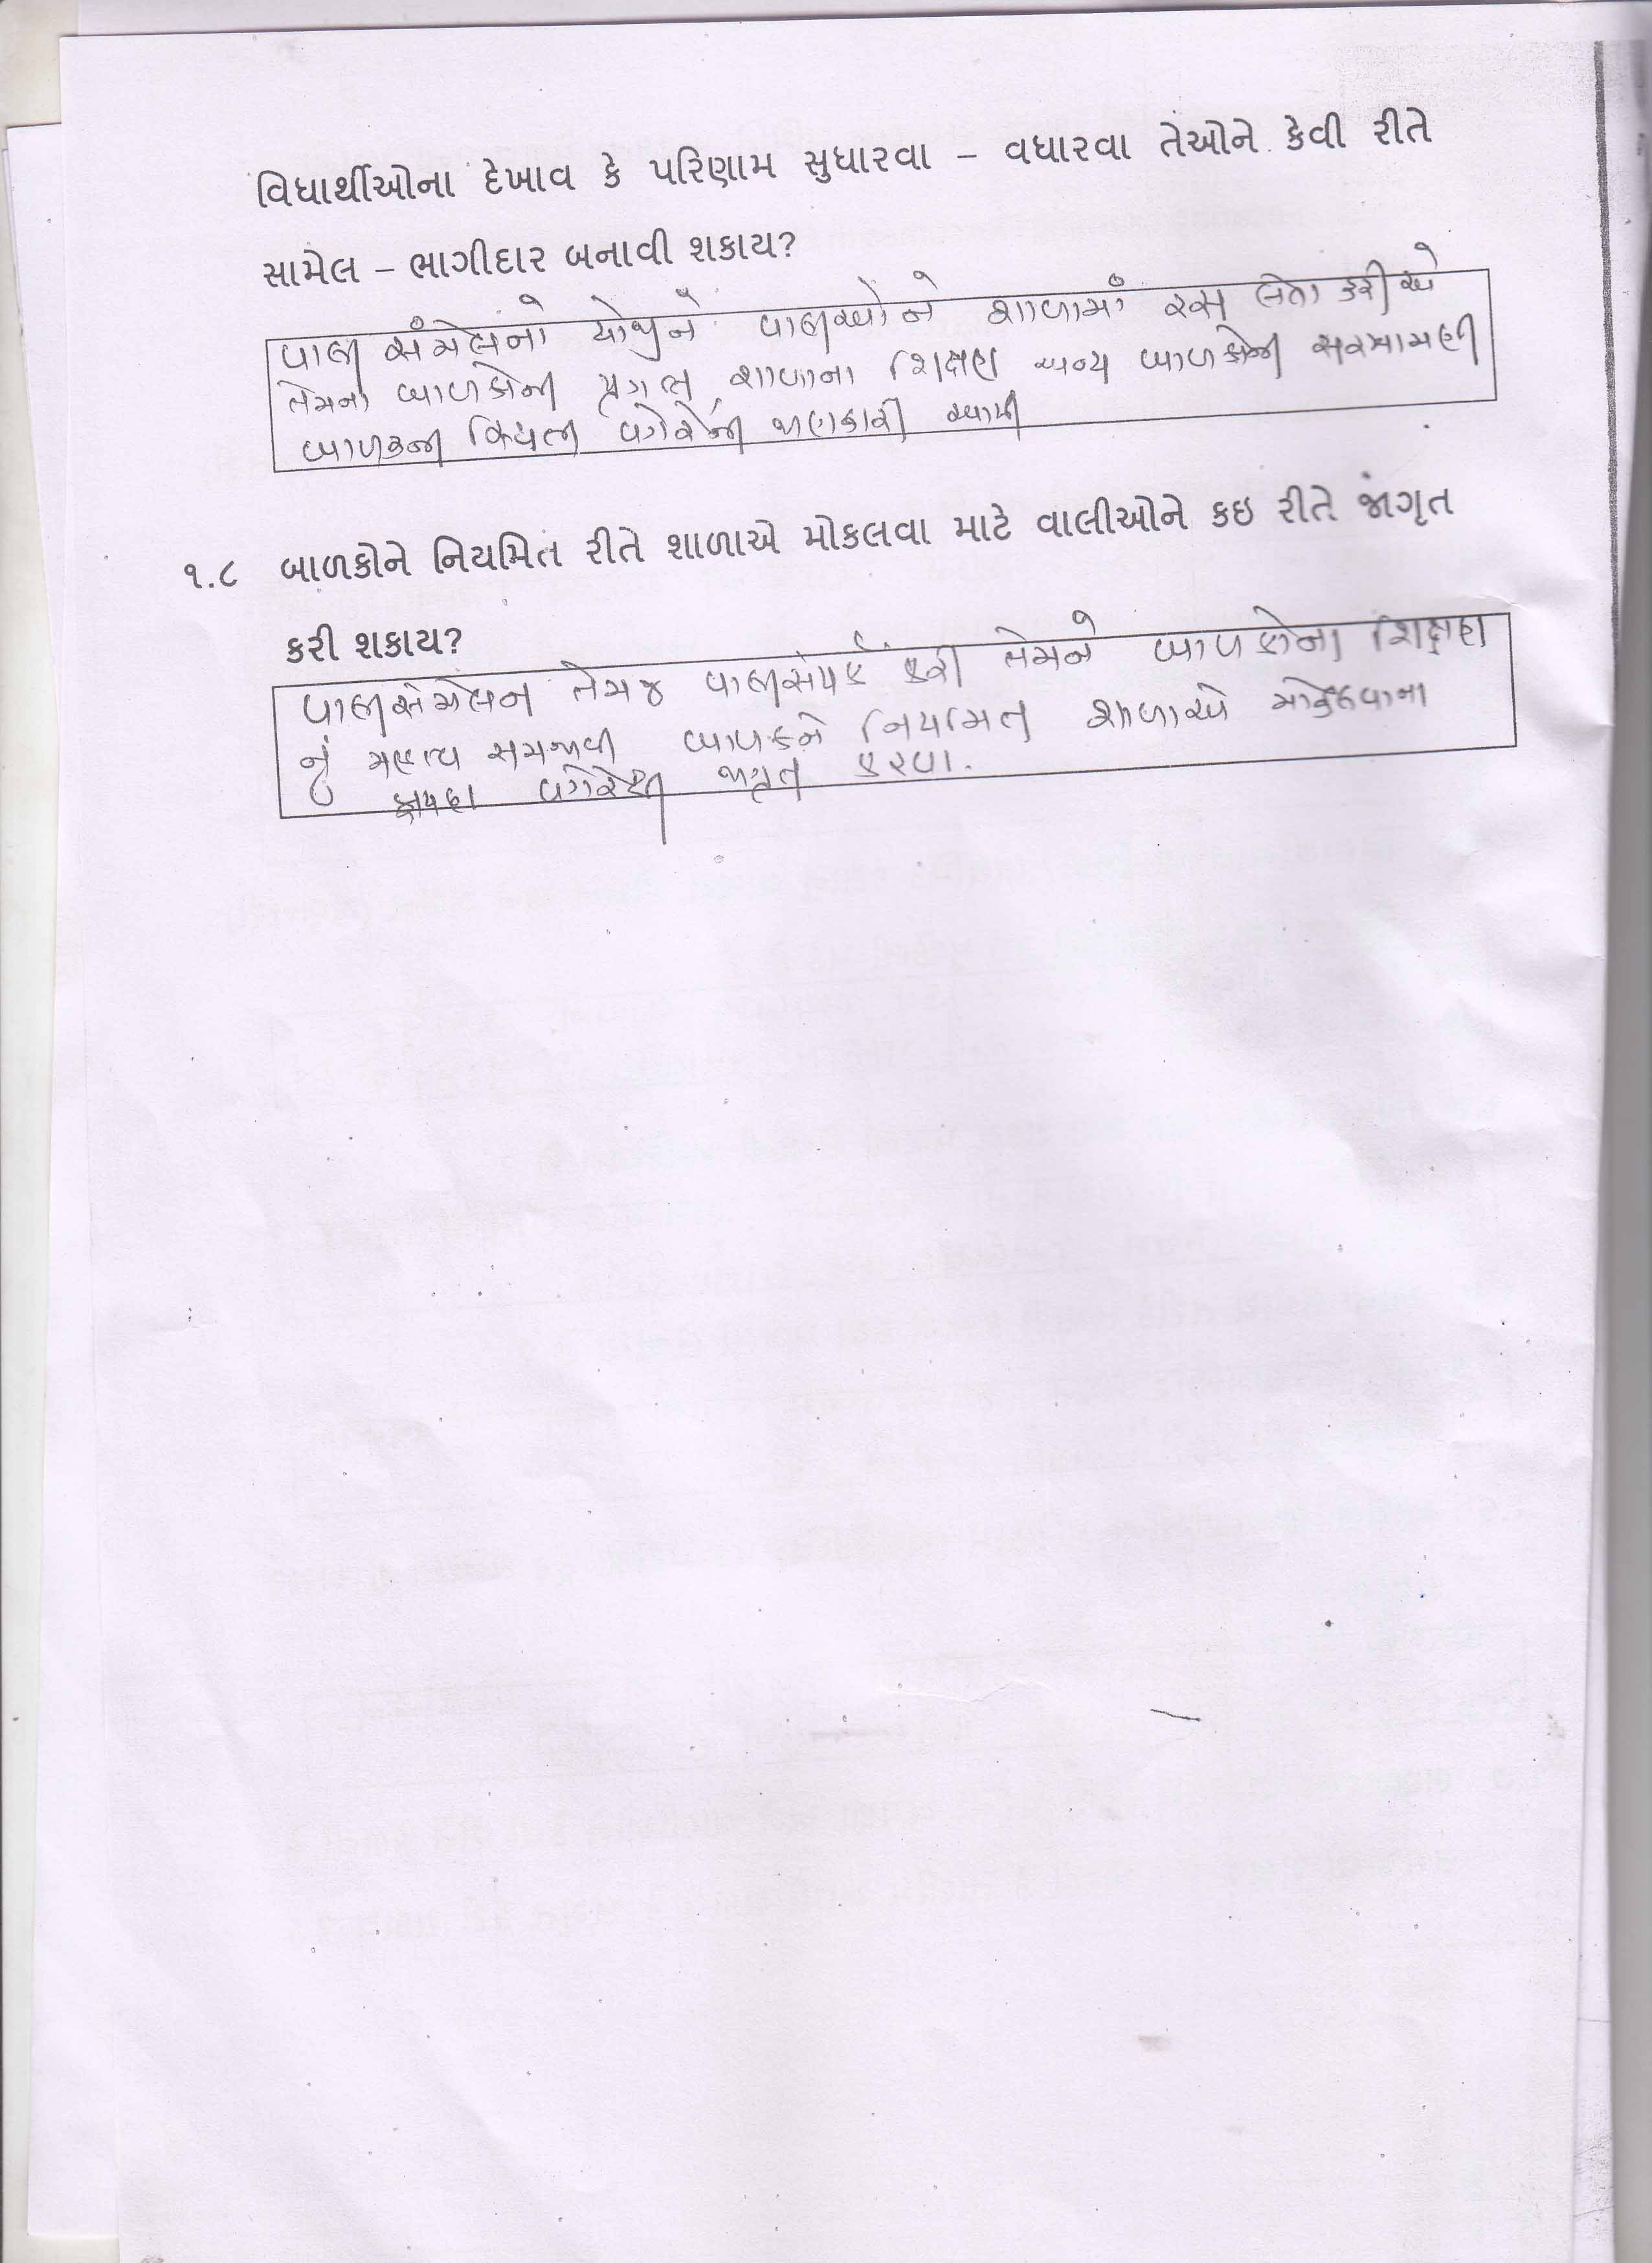 વિધાર્થીઓના દેખાવ કે પરિણામ સુધારવા – વધારવા તેઓને કેવી રીતે
સામેલ – ભાગીદાર બનાવી શકાય?
વાલી સંમેલનો યોજીને વાલીઓને શાળામાં રસ લેતા કરીએ
તેમના બાળકોની પ્રગતિ, શાળાના શિક્ષણ અન્ય બાળકોની સરખામણી
બાળકની વગેરેની જાણકારી આપી
૧.૮ બાળકોને નિયમિત રીતે શાળાએ મોકલવા માટે વાલીઓને કઇ રીતે જાગૃત
કરી શકાય?
વાલીસંમેલન તેમજ વાલીસંપર્ક કરી તેમને બાળકોના શિક્ષણ
નું મહત્વ સમજાવી બાળકને નિયમિત શાળાએ મોકલવાના
વગેરેથી જાગૃત કરવા.